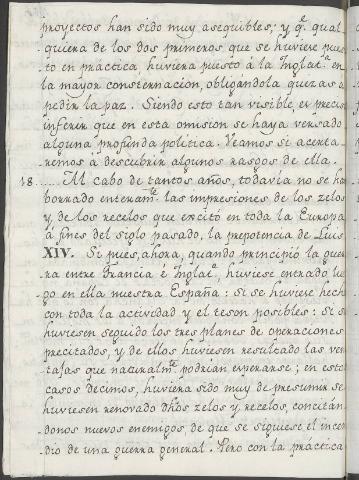 proyectos han sido muy asequibles; y q.e qual
quiera de los dos primeros que se huviese pues
to en práctica huviera puesto á la Inglat.a en
la mayor consternacion, obligandola quizas a
pedir la paz. Siendo esto tan visible es precis
inferir que en esta omision se haya versado
alguna profunda política. Veamos si acerta
remos á descubrir algunos rasgos de ella.
18..... Al cabo de tantos años, todavía no se ha
borrado enteram.te las impresiones de los zelos
y de los recelos que excitó en toda la Europa
á fines del siglo pasado, la prepotencia de Luis
XIV. Si pues, ahora, quando principió la gue
rra entre Francia é Inglat.a, huviese entrado lue
go en ella nuestra España: si se huviese hech
con toda la actividad y el teson posibles: si se
huviesen seguido los tres planes de operaciones
precitados, y de ellos huviesen resultado las ven
tajas que naturalm.te podrian esperarse; en esto
casos decimos, huviera sido muy de presumir se
huviesen renovado dhos zelos y recelos, concitan
donos nuevos enemigos, de que se siguiese el incen
dio de una guerra general. Pero con la práctica